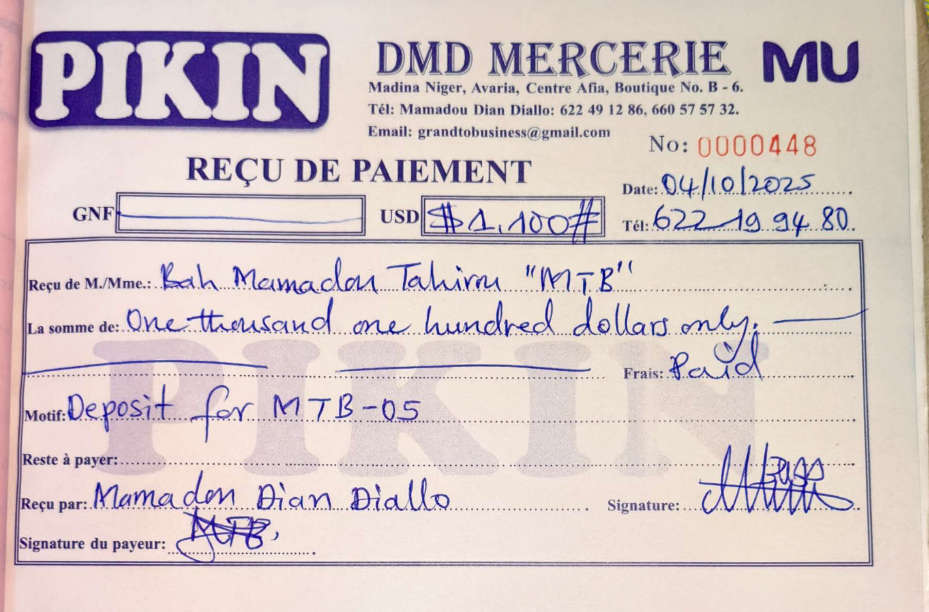 PIKIN
DMD MERCERIE
MU
Madina Niger, Avaria, Centre Afia, Boutique No. B - 6.
Tél: Mamadou Dian Diallo: 622 49 12 86, 660 57 57 32.
Email: grandtobusiness@gmail.com
No: 0000448
REÇU DE PAIEMENT
Date: 04/10/2025
GNF USD $1,100#
Tél: 622 19 94 80
Reçu de M./Mme.: Bah Mamadou Tahirou "MTB"
La somme de: One thousand one hundred dollars only.
Frais: Paid
Motif: Deposit for MTB-05
Reste à payer:
Reçu par: Mamadou Dian Diallo Signature:
Signature du payeur: MTB
PIKIN